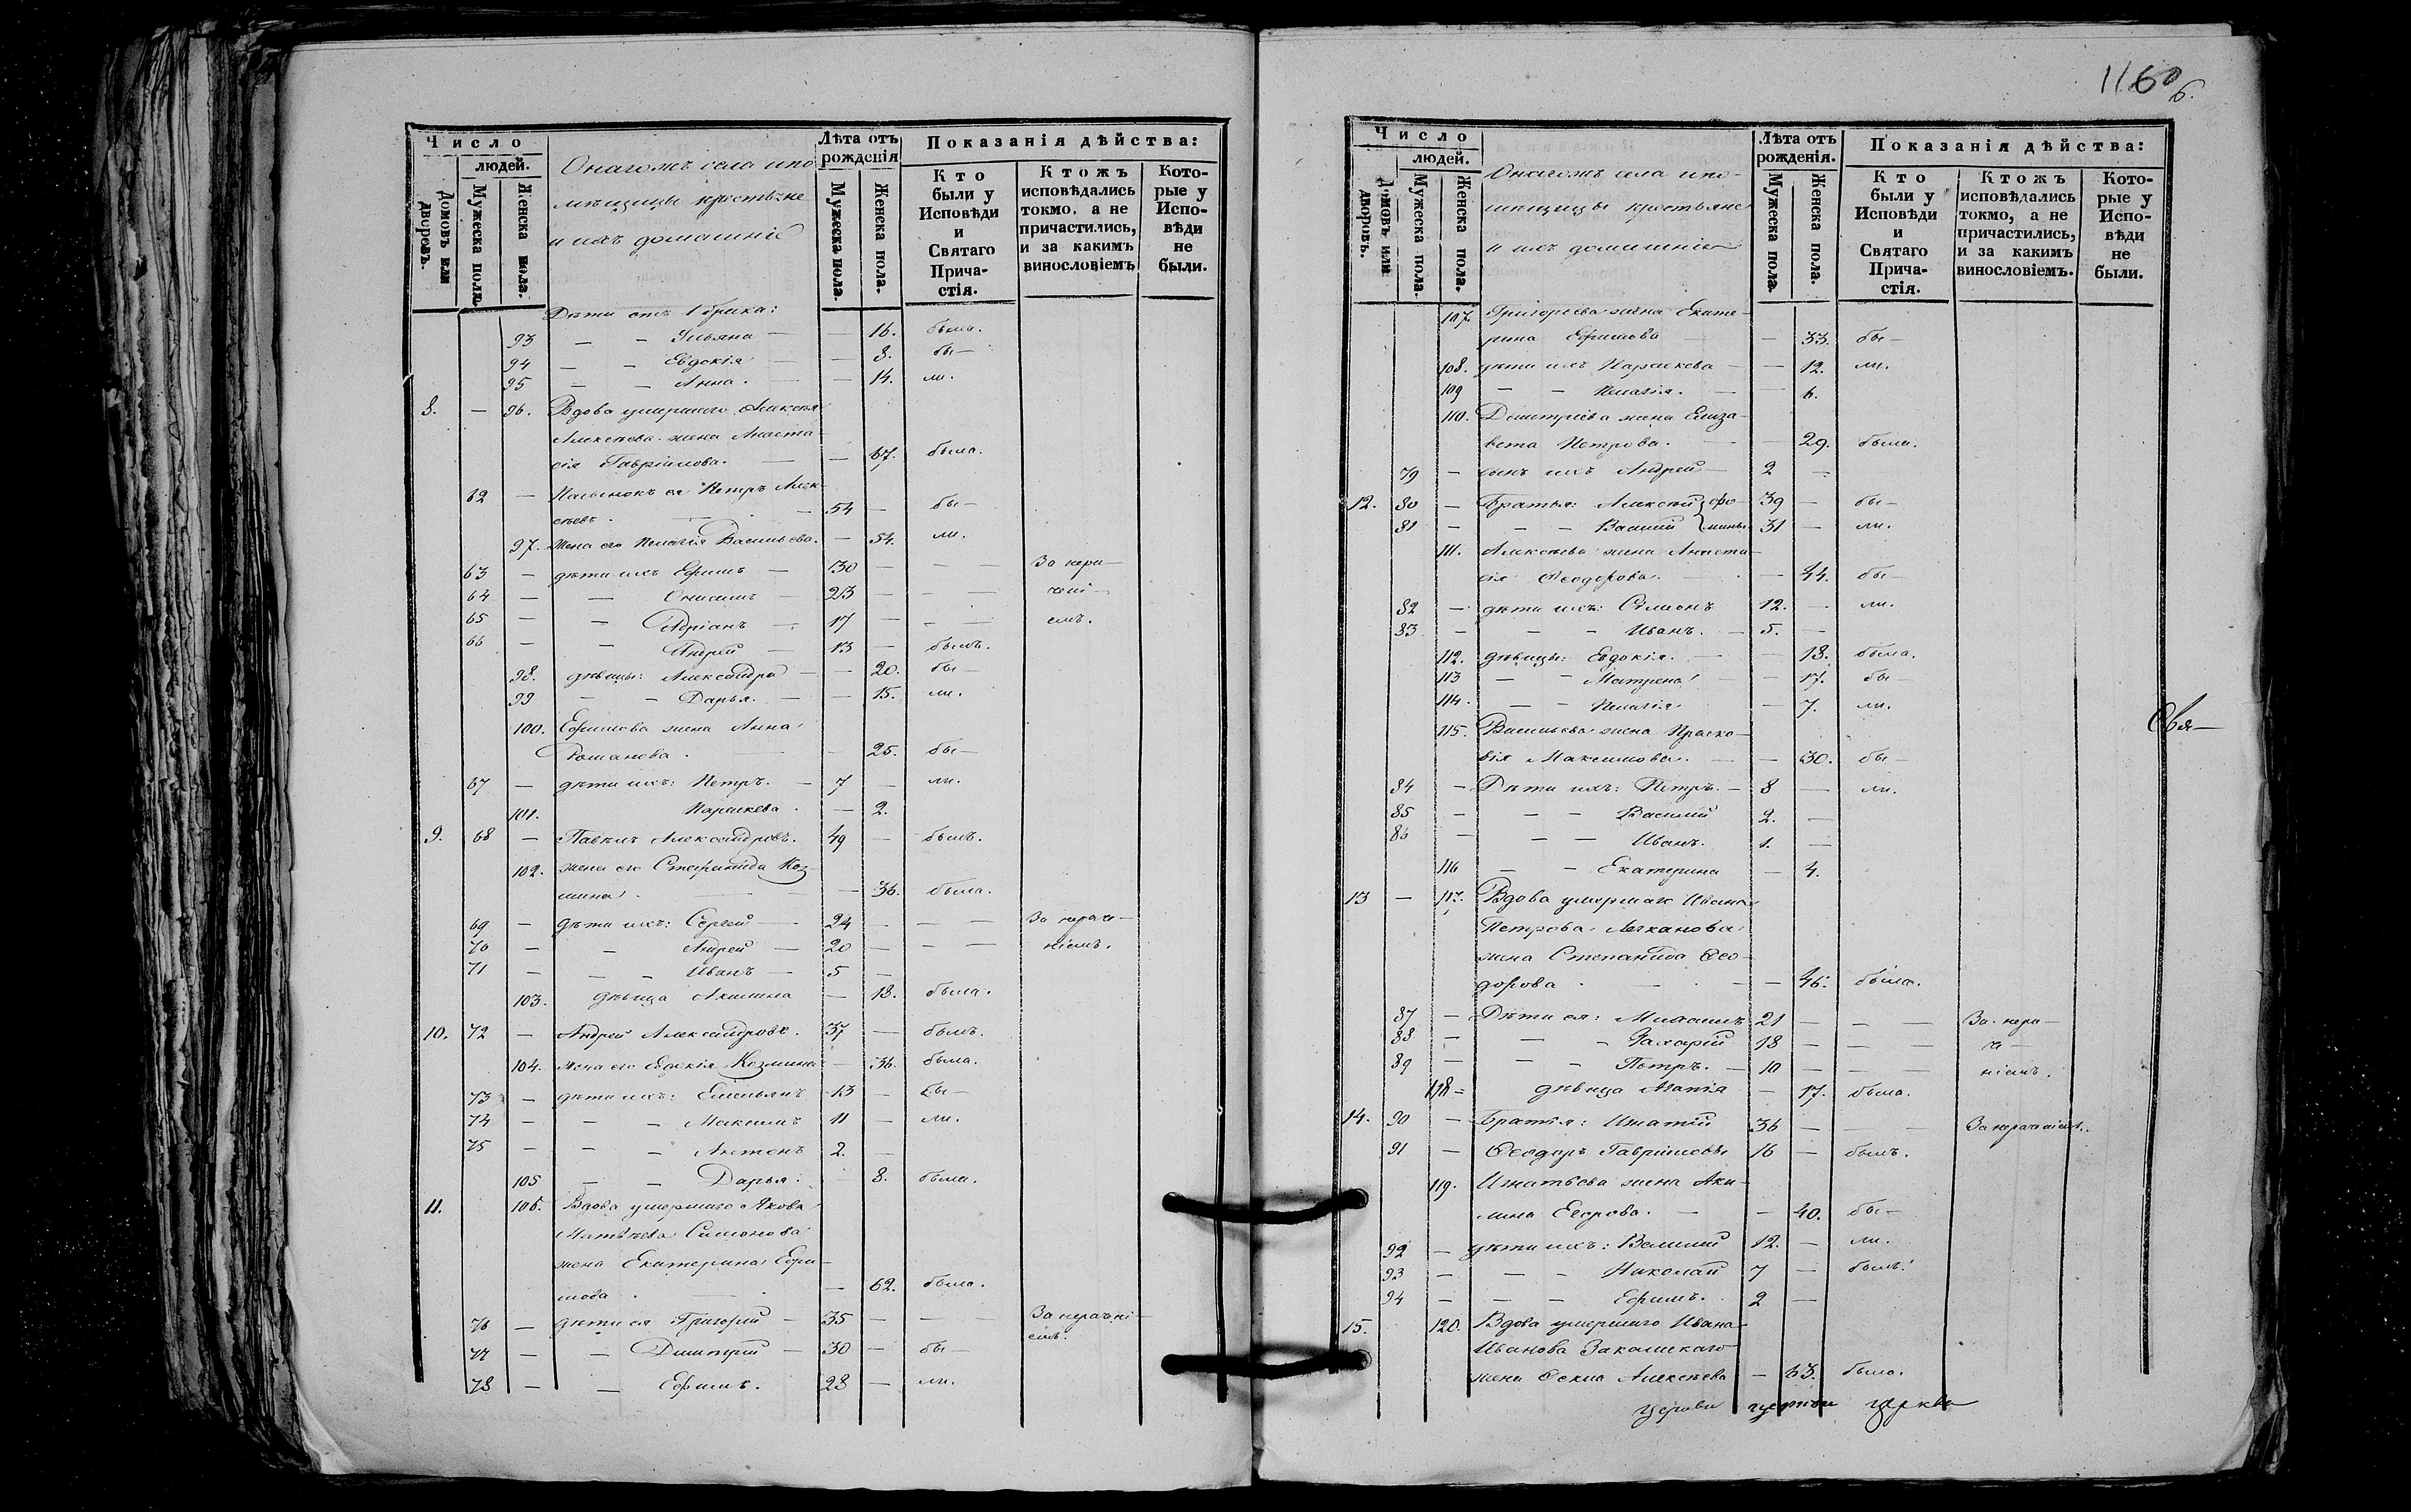 Число
людей.
Домовъ или дворовъ.
Мужеска пола.
Женска пола.
Онагожъ села и по
мѣщицы крестьяне
и ихъ домашніе
Лѣта отъ
рожденія
Мужеска пола.
Женска пола.
Показанія дѣйства:
Кто
были у
Исповѣди
и
Святаго
Прича-
стія.
Ктожъ
исповѣдались
токмо, а не
причастились,
и за какимъ
винословіемъ
Кото-
рые у
Испо-
вѣди
не
были.
Дѣти отъ
93 — — Ульяна — — 16. была.
94 — — Евдокія — — 8. бы —
95 — — Анна. — — 14. ли.
8. — 96. Вдова умершаго Алексѣя
Алексѣева жена Анаста-
сія Гавріилова. — — 67. была.
62 — Пасынокъ ея Петръ Алек-
сѣевъ. — 54 — бы —
97. Жена его Пелагія Васильева. — 54. ли.
63 — дѣти ихъ Ефимъ — 30 — — — За нера —
64 — — Онисимъ — 23 — — — чені —
65 — — Адріанъ — 17 — — — емъ.
66 — — Андрей — 13 — былъ.
98. дѣвицы: Александра — — 20. бы —
99 — — Дарья. — — 15. ли.
100. Ефимова жена Анна
Романова. — — 25. бы —
67 — дѣти ихъ: Петръ. — 7 — ли.
101. Параскева. — 2.
9. 68 — Павелъ Александровъ. 49 — былъ.
102. жена его Стефанида Коз-
мина. — — 36. была.
69 — дѣти ихъ: Сергей — 24 — — — За нераче —
70 — — Андрей — 20 — — — ніемъ.
71 — — — Иванъ — 5 —
103. дѣвица Акилина — 18. была.
10. 72 — Андрей Александровъ. 37 — былъ.
104. жена его Евдокія Козмина — 36. была.
73 — дѣти ихъ: Емельянъ 13 — бы —
74 — — — Максимъ 11 — ли.
75 — — — Антонъ 2. —
105 — — Дарья. — 8. была.
11. 106. Вдова умершаго Якова
Матвѣева Симонова
жена Екатерина Ефи-
мова. — — 62. была.
76 — дѣти ея Григорій — 35 — — — За нерачені —
емъ.
77 — — Димитрій — 30 — бы —
78 — — Ефимъ. 28 — ли.
1160
б.
Число
людей.
Домовъ или дворовъ.
Мужеска пола.
Женска пола.
Онагожъ села и по-
мѣщицы крестьяне
и ихъ домашніе
Лѣта отъ
рожденія.
Мужеска пола.
Женска пола.
Показанія дѣйства:
Кто
были у
Исповѣди
и
Святаго
Прича-
стія.
Ктожъ
исповѣдались
токмо, а не
причастились,
и за какимъ
винословіемъ.
Кото-
рые у
Испо-
вѣди
не
были.
107. Григорьева жена Екате-
рина Ефимова — — 33. бы —
108. дѣти ихъ Параскева — — 12. ли.
109 — — Пелагія. — — 6.
110. Димитріева жена Елиза-
вета Петрова. — — 29. была.
79 — сынъ ихъ Андрей — 2 —
12. 80 — Братья: Алексѣй Фо- 39 — бы —
81 — — — Василій мины 31 — ли.
111. Алексѣева жена Анаста-
сія Ѳеодорова. — — 44. бы —
82 — дѣти ихъ: Симеонъ 12. — ли.
83 — — — Иванъ. — 5. —
112. дѣвицы: Евдокія. — — 18. была.
113 — — Матрена — — 17. бы —
114. — — Пелагія — 7. ли.
Свя —
115. Васильева жена Праско-
вія Максимова. — — 30. бы —
84 — Дѣти ихъ: Петръ. — 8 — ли.
85 — — — Василій 2. —
86 — — — Иванъ. 1. —
116 — — Екатерина — 4.
13 — 117. Вдова умершаго Ивана
Петрова
жена Степанида Ѳео-
дорова — — 46. была.
87 — Дѣти ея: Михаилъ 21 — — — За нера —
88 — — — Захарій 18 — — — че —
89 — — — Петръ. — 10 — — — ніемъ.
118 — дѣвица Агапія — 17. была.
14. 90 — Братья: Игнатій 36 — — — За нераченіемъ.
91 — Ѳеодоръ Гавріиловы 16 — былъ.
119. Игнатьева жена Аки-
лина Егорова. — — 40. бы —
92 — дѣти ихъ: Василій 12. — ли.
93 — — — Николай 7 — былъ.
94 — — — Ефимъ. 2 —
15. 120. Вдова умершаго Ивана
Иванова
жена Ѳекла Алексѣева — 63. была.
церкви церкви церкви